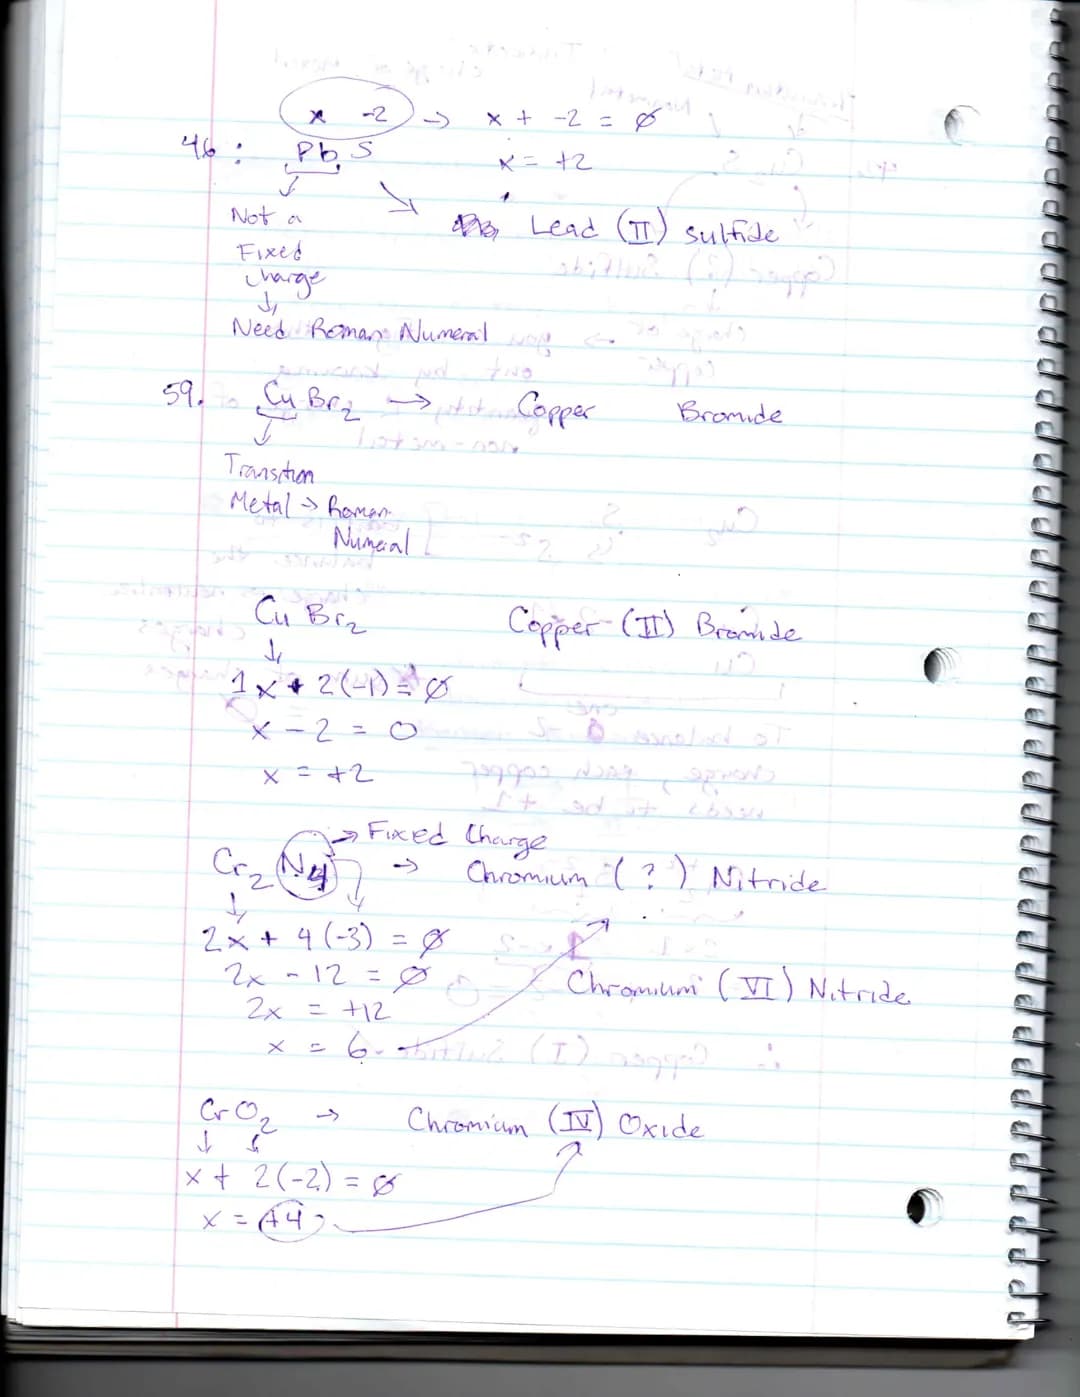 x -2 → x + -2 = 0
46: PbS x = +2
Not a
Fixed
charge
Lead (II) sulfide
Need Roman Numeral
59. CuBr2 → Copper Bromide
Transition
Metal → Roman
Numeral
CuBr2 Copper (II) Bromide
1x + 2(-1) = 0
x - 2 = 0
x = +2
→ Fixed Charge
Cr2N4 → Chromium (?) Nitride
2x + 4(-3) = 0
2x - 12 = 0
Chromium (VI) Nitride
2x = +12
x = 6
CrO2 → Chromium (IV) Oxide
x + 2(-2) = 0
x = +4